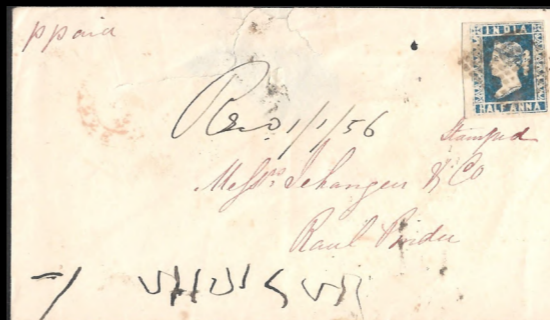 ppaid
INDIA
HALF ANNA
Recd 1/1/56
Stamped
Messrs Jehangeer & Co
Raul Pindee